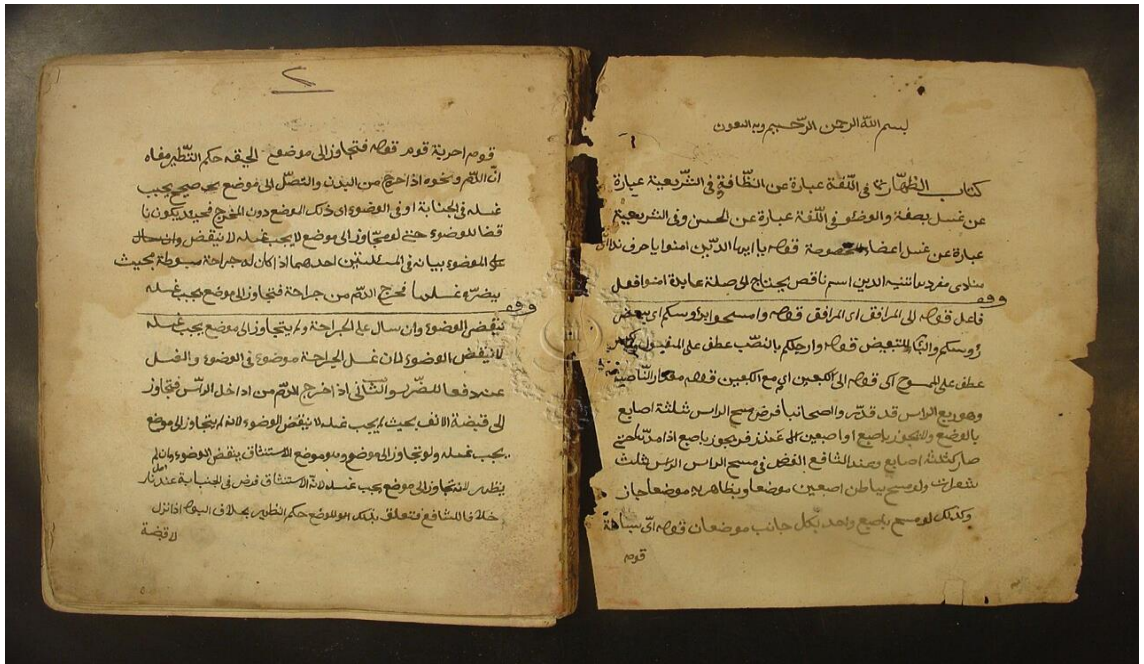 بسم الله الرحمن الرحيم وبه العون
كتاب الطهارة في اللغة عبارة عن النظافة في الشريعية عبارة
عن غسل بصفة والوضؤ في اللغة عبارة عن الحسن وفي الشريعية
عبارة عن غسل اعضاء مخصوصة قوله يا ايها الذين امنوا يا حرف ندا
منادى مفرد تنبيه الذين اسم ناقص يحتاج الى صلة عايدة امنوا فعل
وقف
فاعل قوله الى المرافق اى المرافق قوله وامسحوا برؤسكم اى بعض
رؤسكم والباء للتبعيض قوله وارجلكم بالنصب عطف على المغسول
عطف على الممسوح قوله الى الكعبين اى مع الكعبين قوله مقدار الناصية
وهو ربع الراس قد قدر واصحابنا فرض مسح الراس ثلثة اصابع
بالوضع ولا يجوز باصبع او اصبعين باصبع اذا مدّ حتى
صار كثلثة اصابع وعند الشافع الفض في مسح الراس ثلث
شعرات ولو مسح بباطن اصبعين موضعا وبظاهره موضعا جاز
وكذلك لو مسح باصبع واحد بكل جانب موضعان قوله
قوم
٢
قوم اخرية قوم قوله فتجاوز الى موضع يلحقه حكم التطهير معناه
انّ الدّم ونحوه اذا خرج من البدن والفصل الى موضع صحيح يجب
غسله في الجنابة او في الوضوء اى ذلك الموضع دون المخرج فحينئذ يكون نا
قضا للوضوء حتى لو متجاوز الى موضع لا يجب غسله لا ينقض وان سال
على الموضوء بيانه في المسئلتين احدهما اذا كان له جراحة مبسوطة بحيث
يضره غسلها فخرج الدّم من جراحة فتجاوز الى موضع يجب غسله
وقف
ينقض الوضوء وان سال على الجراحة ولم يتجاوز الى موضع يجب غسله
لا ينقض الوضوء لان غسل الجراحة موضوع في الوضوء والغسل
عند دفعا للضرر والثانى اذا خرج الدّم من داخل الراس فتجاوز
الى قبضة الانف بحيث لم يجب غسله لا ينقض الوضوء لانه لم يتجاوز الى موضع
يجب غسله ولو تجاوز الى موضع وهو موضع الاستنشاق ينقض الوضوء وان لم
يظهر لانه تجاوز الى موضع يجب غسله لانّ الاستنشاق فرض في الجنابة عندنا
خلافا للشافع فتعلق بذلك الموضع حكم التطهير بخلاف البول اذا نزل
لا قبضة